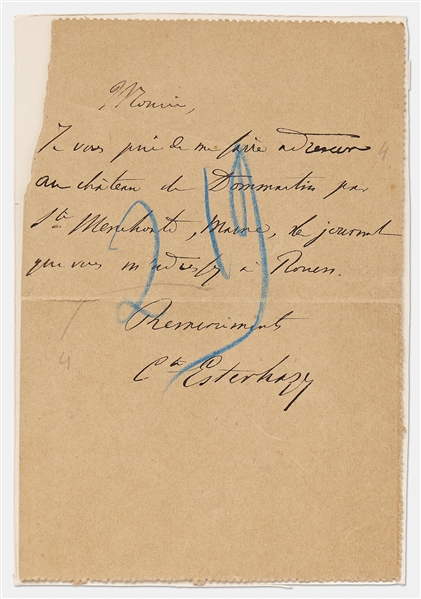 Monsieur,
Je vous prie de me faire adresser
au château de Dommartin par
Ste Menehould, Marne, le journal
que vous m'adressez à Rouen.
Remerciments
Cte Esterhazy
29
4
4